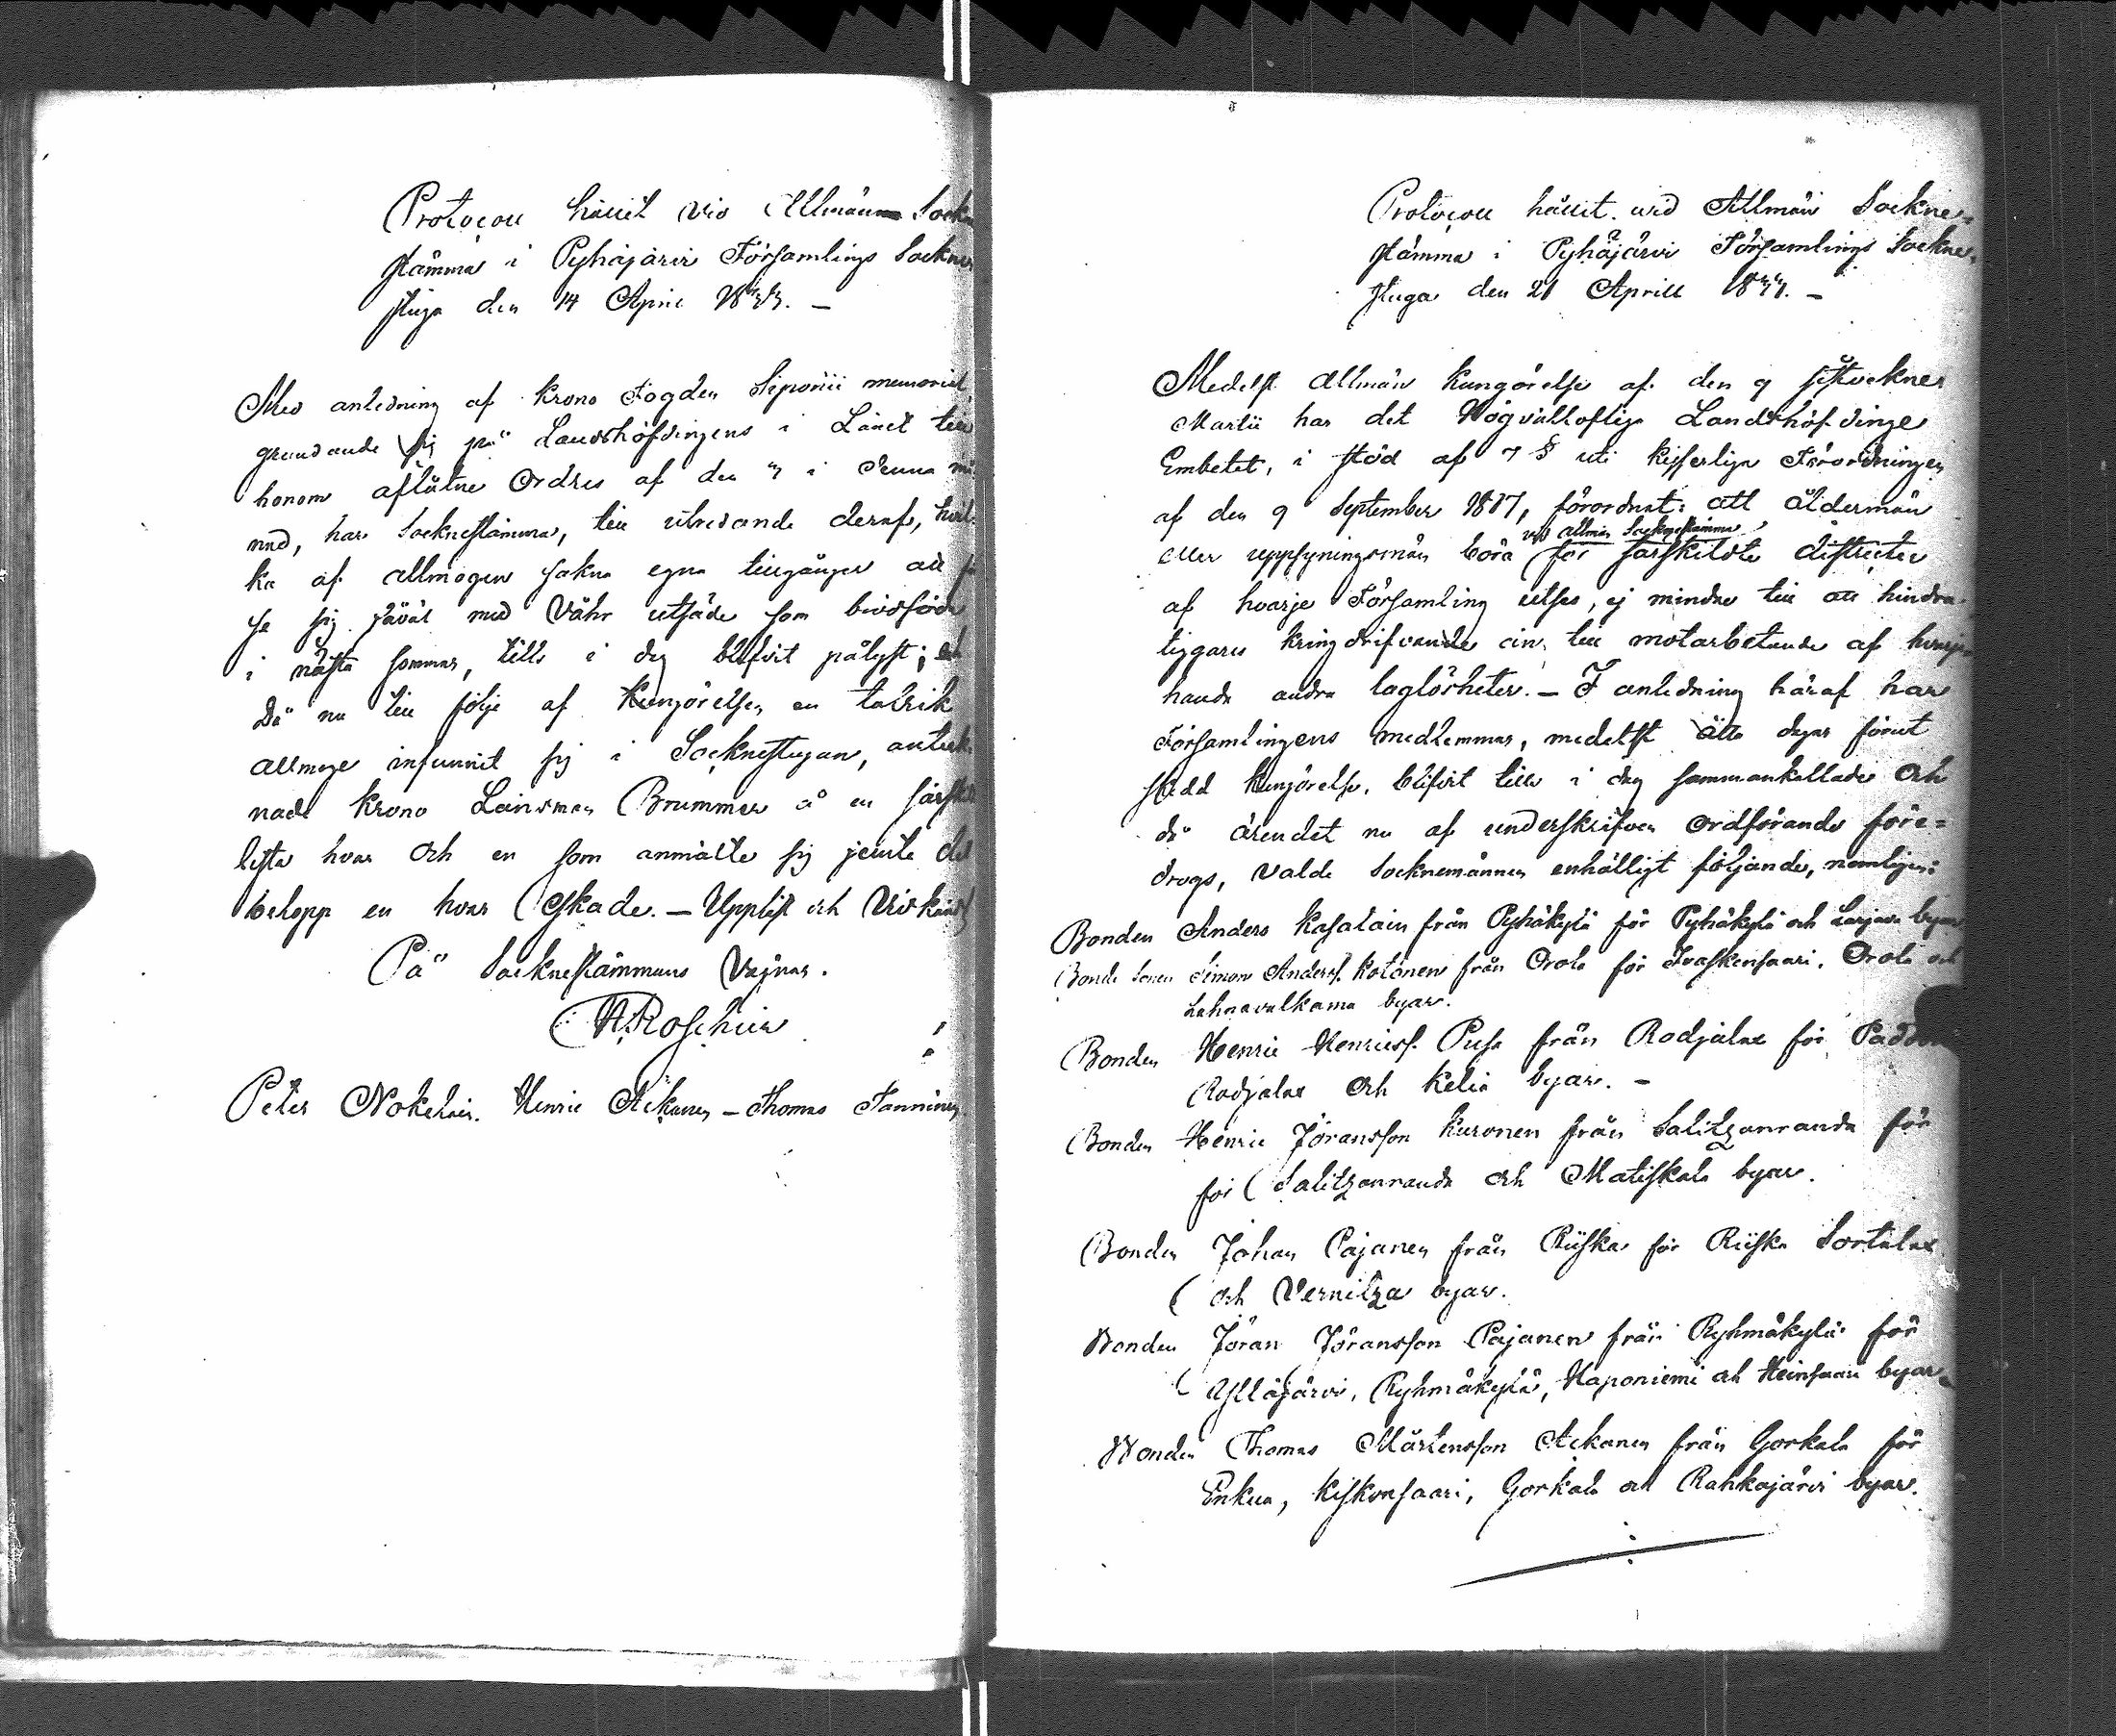 Protocoll hållit vid Allmän Sockne
stämma i Pyhäjärvi Församlings Sockne
stuga den 14 April 1877. –
Med anledning af krono Fogden Siponii memorial,
grundande sig på Landshöfdingens i Länet till
honom aflåtne Ordres af den 7 i denna må
nad, har Socknestämma, till utredande deraf, hvil
ka af allmogen sakna egna tillgångar att för
se sig såväl med Våhr utsäde som brödföda
i nästa sommar, tills i dag blifvit pålyst; och
då nu till följe af Kungörelsen en talrik
allmoge infunnit sig i Socknestugan, anteck
nade krono Länsman Brummer å en särskild
lista hvar och en som anmälte sig jemte det
belopp en hvar äskade. – Upplist och Vidkänd
På Socknestämmans Vägnar.
H. Roschier
Peter Nokelain. Henric Ackanen – Thomas Janninen
Protocoll hållit vid Allmän Sockne-
stämma i Pyhäjärvi Församlings Sockne-
stuga den 21 April 1877. –
Medelst Allmän kungörelse af den 9 sistvekne
Martii har det Högvällofliga Landshöfdinge
Embetet, i stöd af 7 § uti kejserliga Förordningen
af den 9 September 1817, förordnat: att åldermän
vid allmän Socknestämma
eller uppsyningsmän böra för särskildte districter
af hvarje Församling utses, ej mindre till att hindra
tiggares kringdrifvande än till motarbetande af hvarje
handa andra laglösheter. – I anledning häraf har
Församlingens medlemmar, medelst åtta dagar förut
skedd kungörelse, blifvit till i dag sammankallade och
då ärendet nu af underskrifven Ordförande före-
drogs, valde Socknemännen enhälligt följande, nemligen:
Bonden Anders Kasalain från Pyhäkylä för Pyhäkylä och Larjava byar
Bonde Sonen Simon Anderss. Kotonen från Orola för Ivaskensaari, Orola och
Lahnavalkama byar.
Bonden Henric Henricss. Pusa från Rodjalax för
Rodjalax och Kelia byar. –
Bonden Henric Jöransson Kuronen från Salitzanranda för
för Salitzanranda och Matiskala byar.
Bonden Johan Pajanen från Riiska för Riiska Sortalax
och Vernitza byar.
Bonden Jöran Jöransson Pajanen från Ryhmäkylä för
Ylläjärvi, Ryhmäkylä, Haponiemi och Heinsaari byar.
Bonden Thomas Mårtensson Ackanen från Gorkala för
Enkua, Kiskonsaari, Gorkala och Rahkajärvi byar.